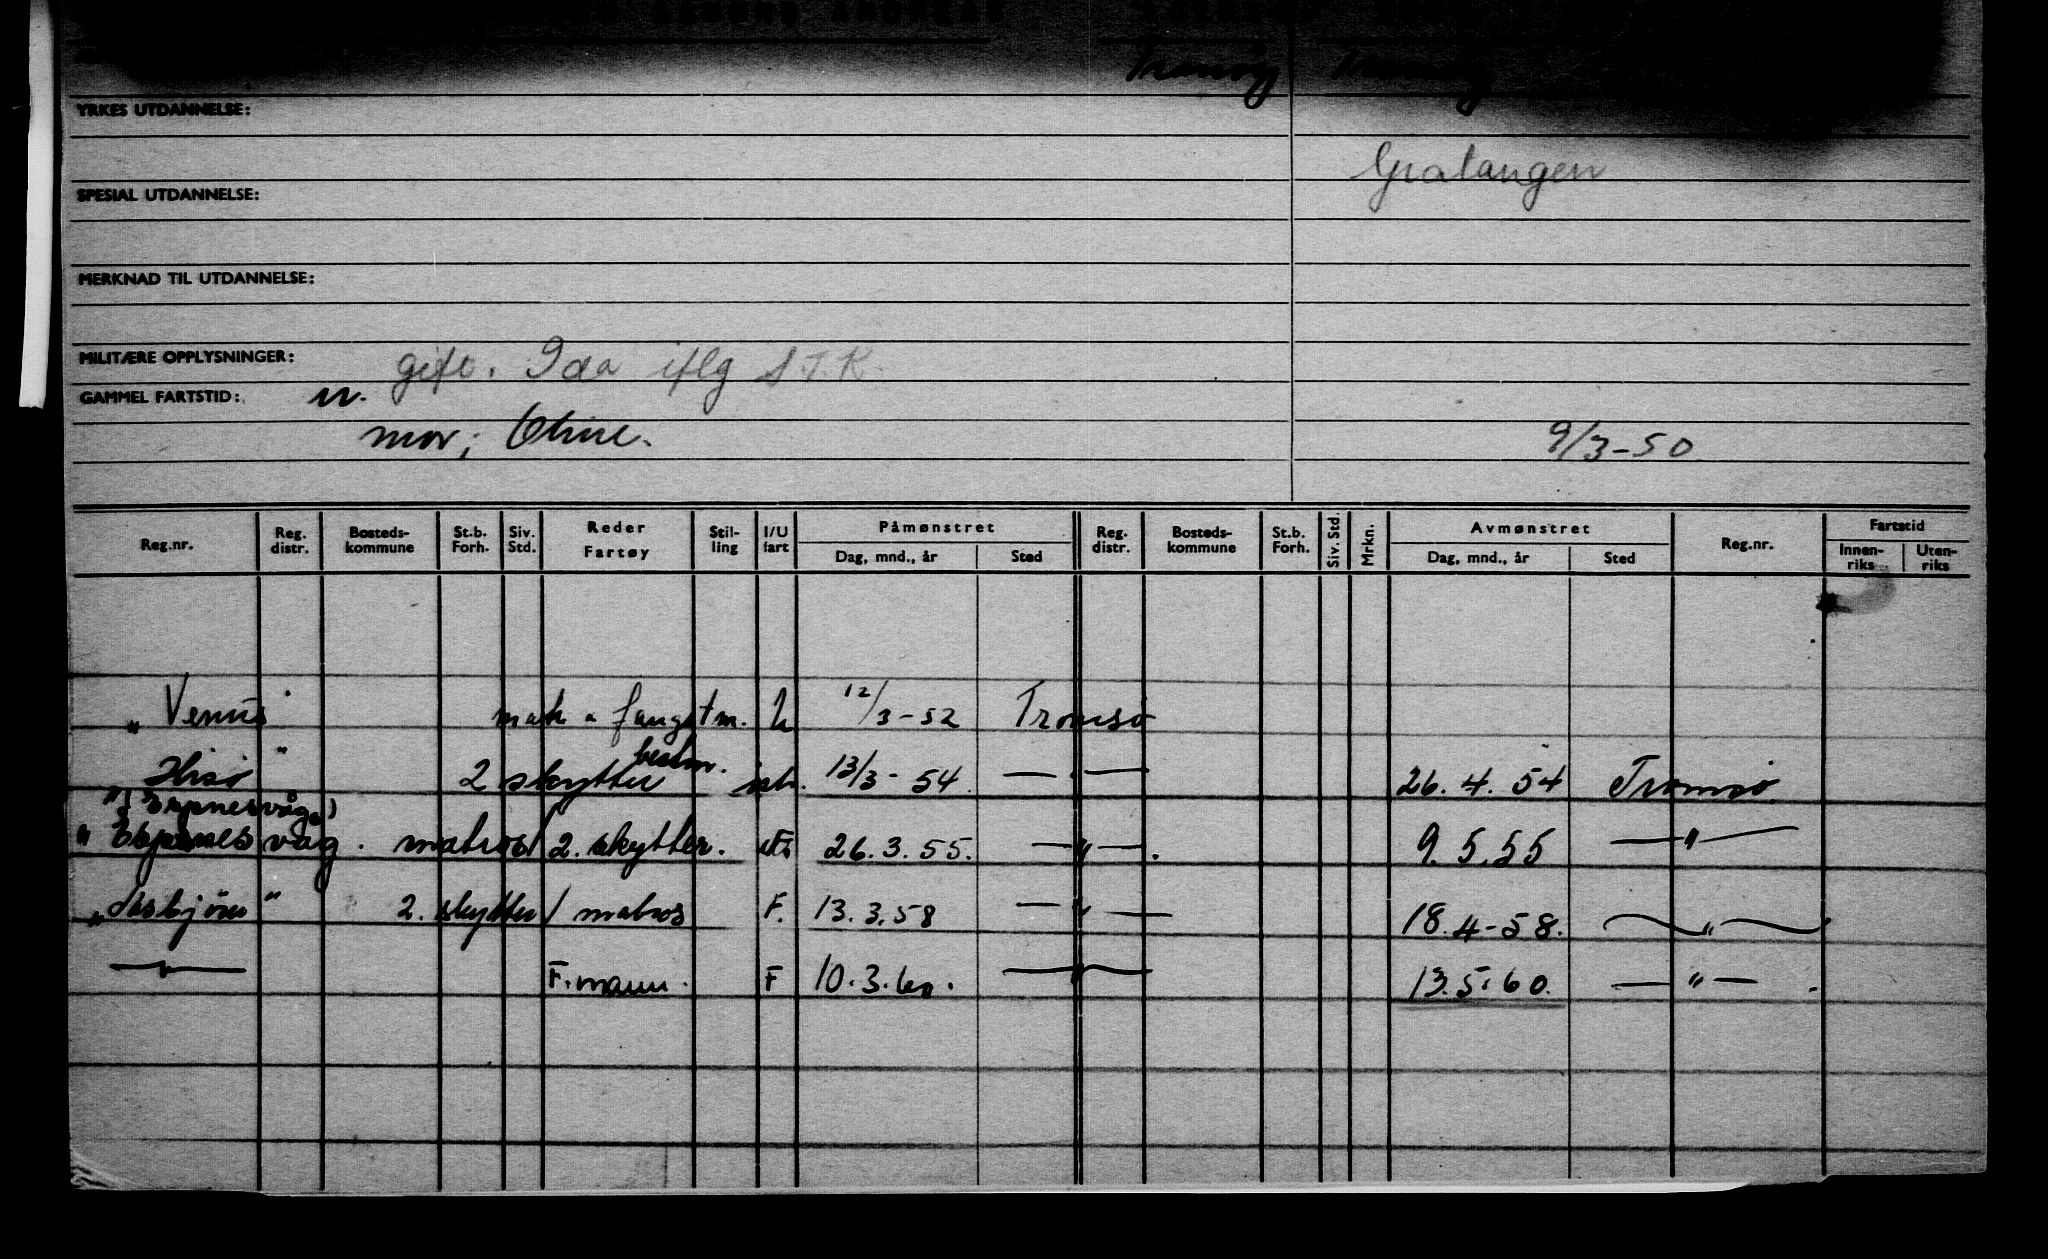 Tranøy Tranøy
YRKES UTDANNELSE:
Gratangen
SPESIAL UTDANNELSE:
MERKNAD TIL UTDANNELSE:
MILITÆRE OPPLYSNINGER: gift. Ida iflg S.T.K.
GAMMEL FARTSTID: n.
mor; Oline. 9/3-50
Reg.nr. Reg. distr. Bosteds-kommune St.b. Forh. Siv. Std. Reder Fartøy Stil-ling I/U fart Påmønstret Dag, mnd., år Sted Reg. distr. Bosteds-kommune St.b. Forh. Siv. Std. Mrkn. Avmønstret Dag, mnd., år Sted Reg.nr. Fartstid Innen-riks Uten-riks
"Venus" mask a fangstm. U 12/3-52 Tromsø
"Hisø" 2 skytter bestm. ish. 13/3-54 — — 26.4.54 Tromsø
"Espenesvåg. matros/2. skytter. 26.3.55. —"—. 9.5.55 —"—
"Asbjørn" 2. skytter/matros F. 13.3.58 —"— 18.4-58. —"—
—"— F.mann. F 10.3.60. —"— 13.5.60. —"—.